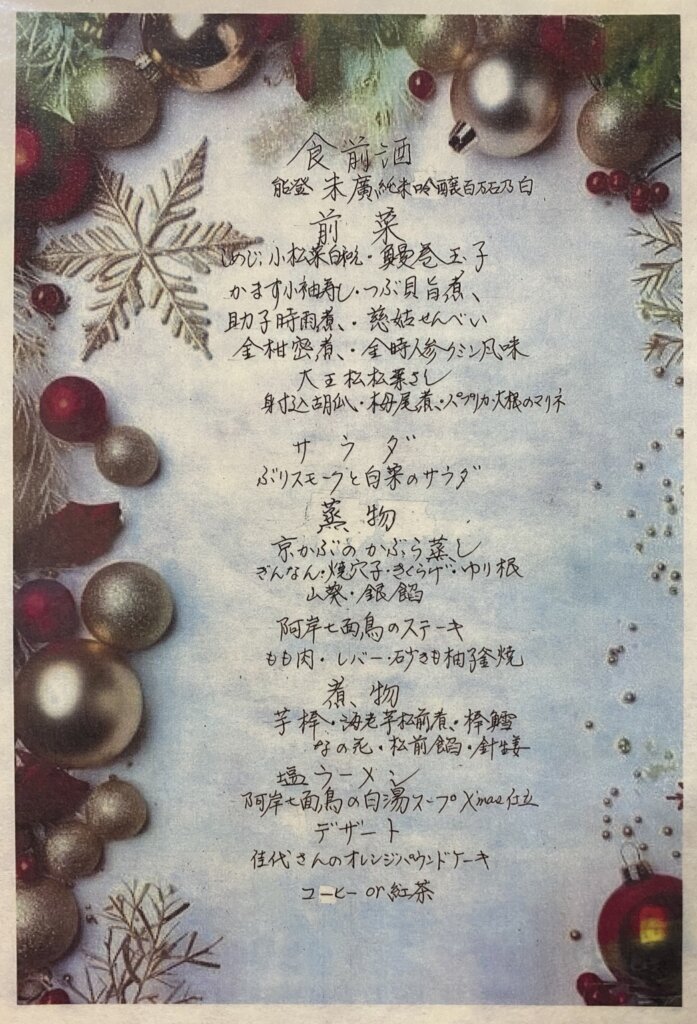 食前酒
能登 朱廣 純米吟醸百万石乃白
前菜
しめじ、小松菜白和え・鰻巻玉子
かます小袖寿し・つぶ貝旨煮、
助子時雨煮、・慈姑せんべい
金柑密煮、・金時人参クミン風味
大王松松葉さし
射込胡瓜・梅尾煮・パプリカ・大根のマリネ
サラダ
ぶりスモークと白菜のサラダ
蒸物
京かぶのかぶら蒸し
ぎんなん・焼穴子・きくらげ・ゆり根
山葵・銀餡
阿岸七面鳥のステーキ
もも肉・レバー・砂ぎも柚子釜焼
煮物
芋棒・海老芋松前煮、・棒鱈
なの花・松前餡・針生姜
塩ラーメン
阿岸七面鳥の白湯スープX'mas仕立
デザート
佳代さんのオレンジパウンドケーキ
コーヒー or 紅茶